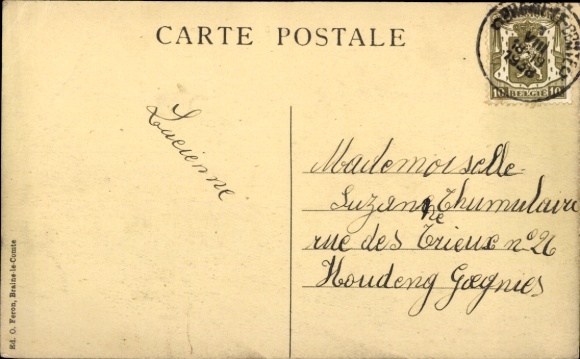 CARTE POSTALE
VIII
10 BELGIE 10
Lucienne
Mademoiselle
Suzanne Thumulaire
rue des Trieux n° 26
Houdeng Gœgnies
Ed. O. Feron, Braine-le-Comte